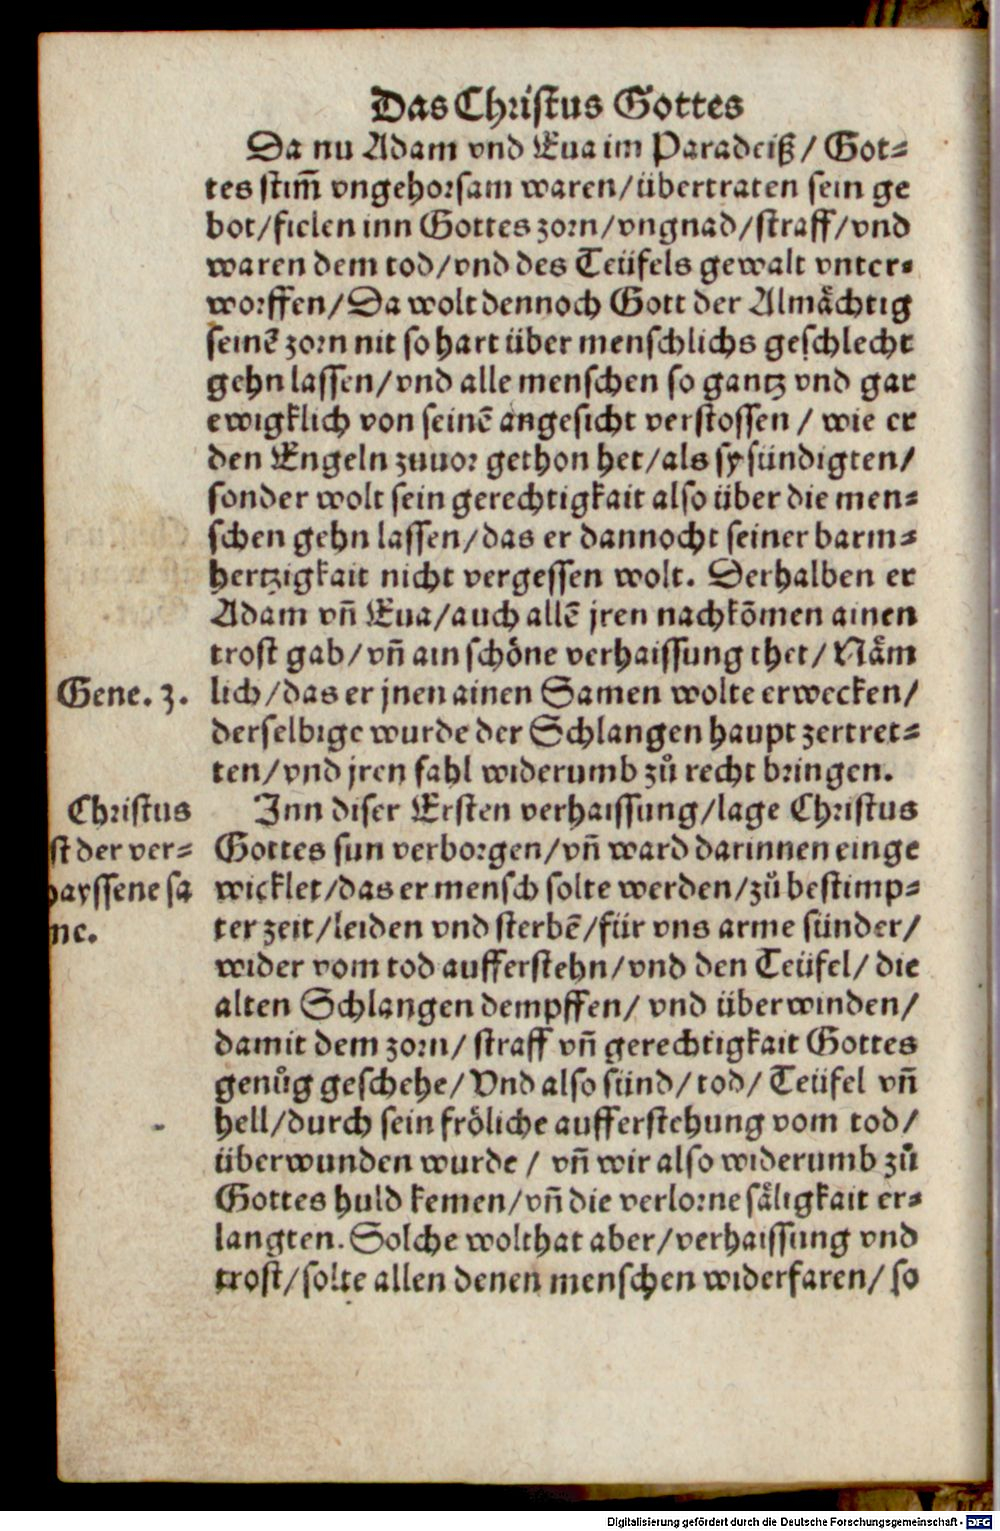 Das Christus Gottes
Da nu Adam vnd Eua im Paradeiß/ Got-
tes stim̃ vngehorsam waren/übertraten sein ge
bot/fielen inn Gottes zorn/vngnad/straff/vnd
waren dem tod/vnd des Teüfels gewalt vnter-
worffen/Da wolt dennoch Gott der Almaͤchtig
seinẽ zorn nit so hart über menschlichs geschlecht
gehn lassen/vnd alle menschen so gantz vnd gar
ewigklich von seinẽ angesicht verstossen / wie er
den Engeln zuuor gethon het/als sy sündigten/
sonder wolt sein gerechtigkait also über die men-
schen gehn lassen/das er dannocht seiner barm-
hertzigkait nicht vergessen wolt. Derhalben er
Adam vñ Eua/auch allẽ jren nachkõmen ainen
trost gab/vñ ain schoͤne verhaissung thet/ Naͤm
Gene. 3.
lich/das er jnen ainen Samen wolte erwecken/
derselbige wurde der Schlangen haupt zertret-
ten/vnd jren fahl widerumb zů recht bringen.
Christus
st der ver-
hayssene sa
me.
Inn diser Ersten verhaissung/lage Christus
Gottes sun verborgen/vñ ward darinnen einge
wicklet/das er mensch solte werden/zů bestimp-
ter zeit/leiden vnd sterbẽ/für vns arme sünder/
wider vom tod aufferstehn/vnd den Teüfel/ die
alten Schlangen dempffen/ vnd überwinden/
damit dem zorn/ straff vñ gerechtigkait Gottes
genůg geschehe/ Vnd also sünd/ tod/ Teüfel vñ
hell/durch sein froͤliche aufferstehung vom tod/
überwunden wurde / vñ wir also widerumb zů
Gottes huld kemen/vñ die verlorne saͤligkait er-
langten. Solche wolthat aber/verhaissung vnd
trost/solte allen denen menschen widerfaren/ so
Digitalisierung gefördert durch die Deutsche Forschungsgemeinschaft - DFG